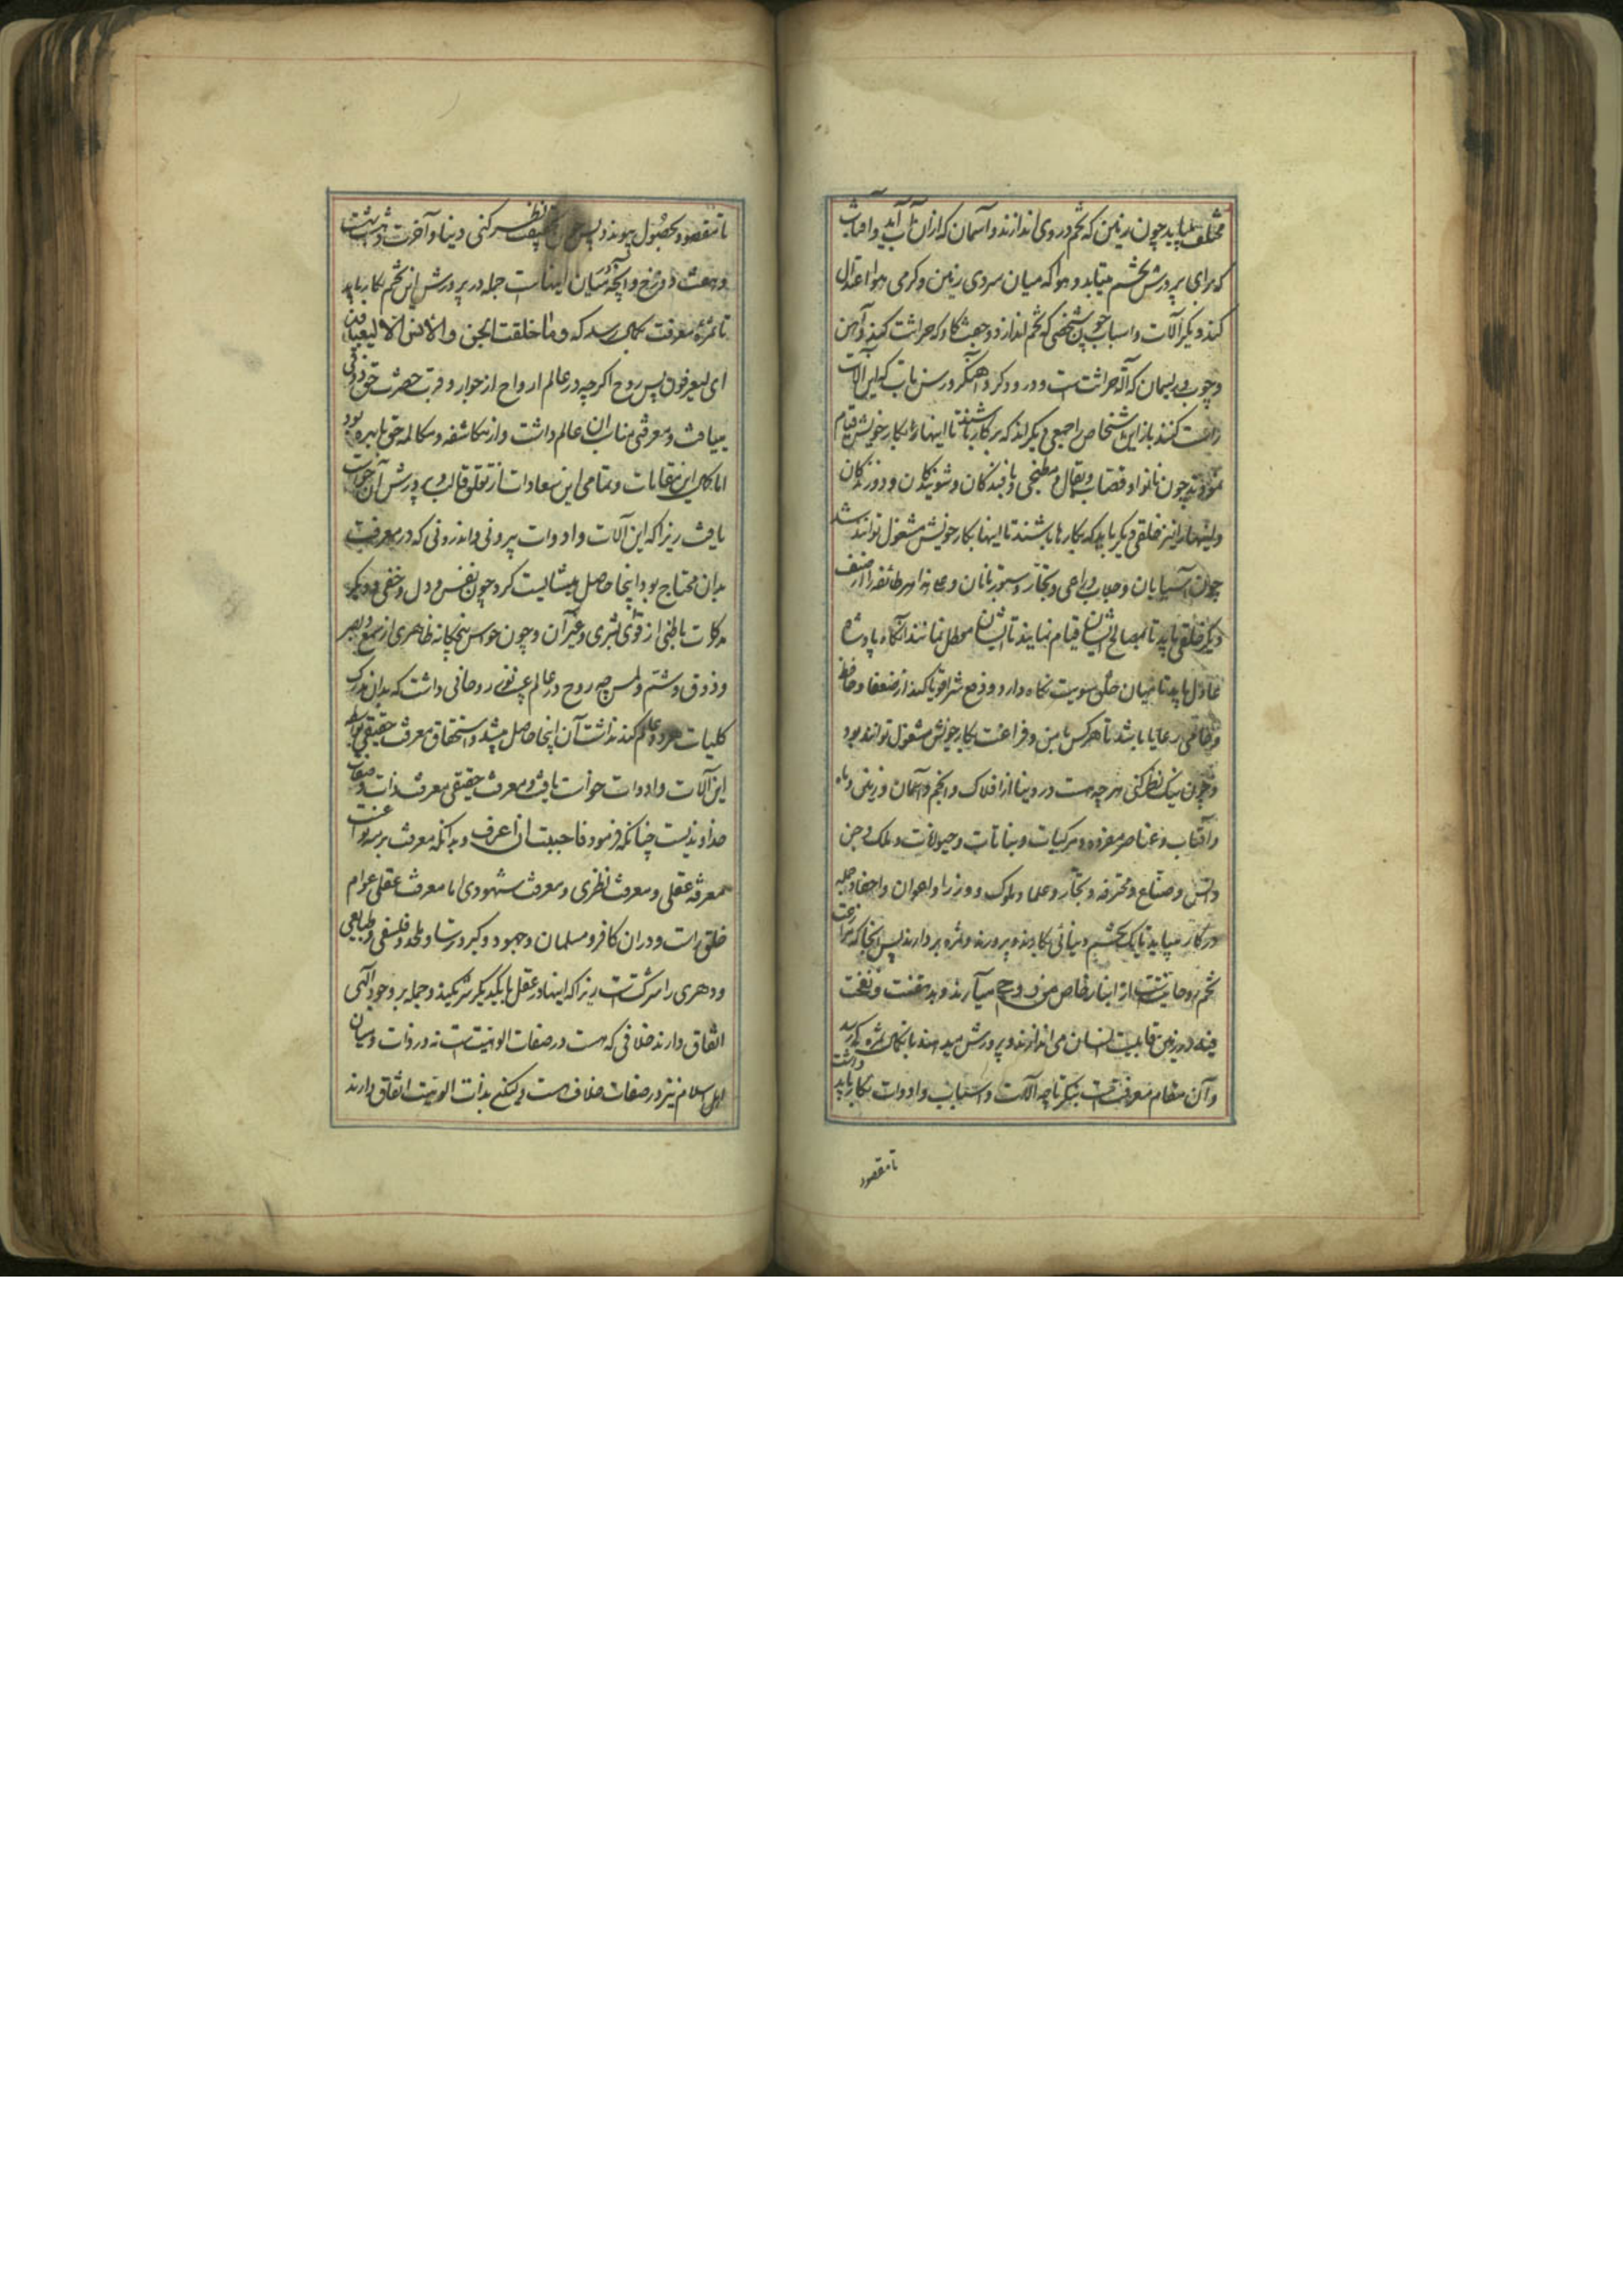 مختلف میباید چون زمین که تخم در وی اندازند و آسمان که ازان آب آید و آفتاب
که برای پرورش تخم میتابد و هوا که میان سردی زمین و کرمی هوا اعتدال
کند و دیکر آلات و اسباب چون شخصی که تخم اندازد و جفت کاو که حراثت کند و آهن
و چوب و ریسمان که آله حراثت است و درودکر و آهنکر و رسن تاب که این آلات
راست کنند باز این اشخاص را جمعی دیکر اند که برکار باشند تا اینها بکار خویش قیام
نمودند چون نانوا و قصاب و بقال و مطبخی و بافندکان و شویندکان و دوزندکان
و اینها را نیز خلقی دیکر باید که بکارها باشند تا اینها بکار خویش مشغول توانند شد
چون آسیابان و جلاب و راعی و نجار و ستوربانان و علی هذا هر طائفه را از صنف
دیکر خلقی باید تا بمصالح ایشان قیام نمایند تا ایشان معطل نمانند آنکاه پادشاه
عادل باید تا میان خلق سویت نکاه دارد و دفع شر اقویا کند از ضعفا و حافظ
و حامی رعایا باشد تا هر کس بامن و فراغت بکار خویش مشغول توانند بود
و چون نیک نظر کنی هر چه هست در دنیا از افلاک و انجم و آسمان و زمین و ماه
و آفتاب و عناصر مفرده و مرکبات و نباتات و حیوانات و ملک و جن
و انس و صناع و محترفه و تجار و علما و ملوک و وزرا و اعوان و اجناد جمله
در کار میباید تا یک تخم دنیائی بکارند و بپرورند و ثمره بردارند پس اینجا که زراعت
تخم روحانیت است از انبار خاص من روحی میآرند و بدهقنت و نفخت
فیه در زمین قابلیت انسان می اندازند و پرورش میدهند تا بکمال ثمره رسد
و آن مقام معرفت است بنکر تا چه آلات و اسباب و ادوات بکار باید داشت
تا مقصود
تا مقصود بحصول پیوندد پس چون بحقیقت نظر کنی دنیا و آخرت و بهشت
و هشت و دوزخ و آنچه میان اینهاست جمله در پرورش این تخم بکار باید
تا ثمره معرفت بکمال رسد که و ما خلقت الجن و الانس الا لیعبدون
ای لیعرفون پس روح اکرچه در عالم ارواح از جوار و قربت حضرت حق ذوقی
مییافت و معرفتی مناسب ان عالم داشت و از مکاشفه و مکالمه حق با بهره بود
اما کمال این مقامات و تمامی این سعادات از تعلق قالب و پرورش آن خواست
یافت زیرا که این آلات و ادوات بیرونی و اندرونی که در معرفت
بدان محتاج بود اینجا حاصل میشایست کرد چون نفس و دل و خفی و دیکر
مدرکات باطنی از قوی بشری و غیر آن و چون حواس پنجکانه ظاهری از سمع و بصر
و ذوق و شم و لمس چه روح در عالم غیب نوری روحانی داشت که بدان مدرک
کلیات هر دو عالم کند نداشت آن اینجا حاصل میشد و استحقاق معرفت حقیقی بواسطه
این آلات و ادوات خواست یافت و معرفت حقیقی معرفت ذات و صفات
خداوندیست چنانکه فرمود فاحببت ان اعرف و بدانکه معرفت بر سه نوعست
معرفه عقلی و معرفت نظری و معرفت شهودی اما معرفت عقلی عوام
خلق راست و دران کافر و مسلمان و جهود و کبر و ترسا و ملحد و فلسفی و طبایعی
و دهری را شرکتست زیرا که اینها در عقل با یکدیکر شریکند و جمله بر وجود الهی
اتفاق دارند خلافی که هست در صفات الوهیت است نه در ذات و میان
اهل اسلام نیز در صفات خلاف هست و لیکن بذات الوهیت اتفاق دارند